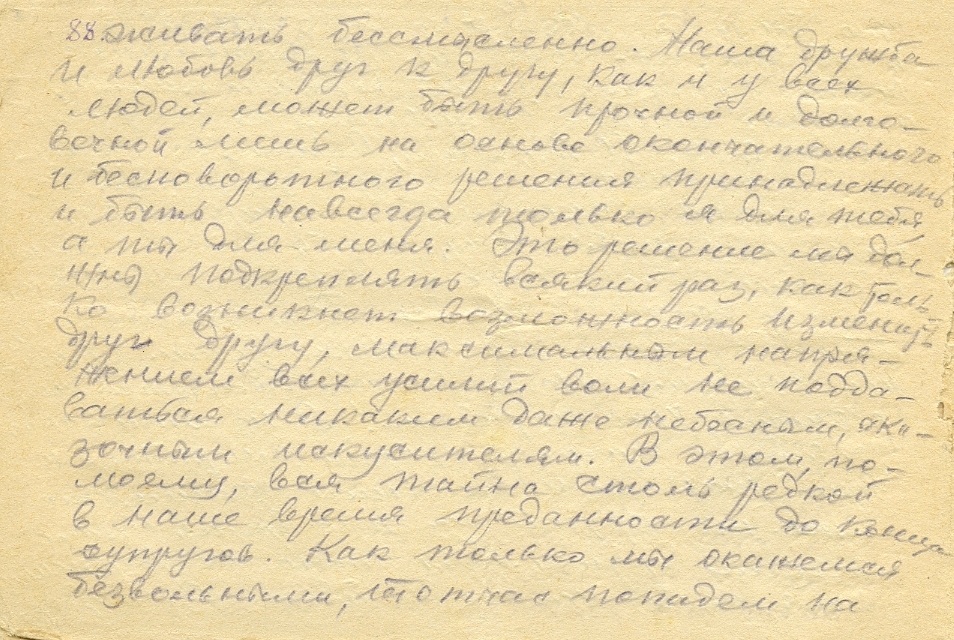 88. живать бессмысленно. Наша дружба
и любовь друг к другу, как и у всех
людей, может быть прочной и долго-
вечной лишь на основе окончательного
и бесповоротного решения принадлежать
и быть навсегда только я для тебя,
а ты для меня. Это решение мы дол-
жны подкреплять всякий раз, как толь-
ко возникнет возможность изменить
друг другу, максимальным напря-
жением всех усилий воли не подда-
ваться никаким даже небесным, ска-
зочным искусителям. В этом, по-
моему, вся тайна столь редкой
в наше время преданности до конца
супругов. Как только мы окажемся
безвольными, тотчас попадем на